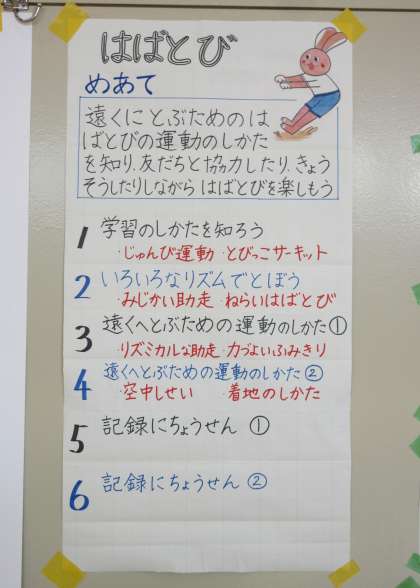 はばとび
めあて
遠くにとぶためのは
ばとびの運動のしかた
を知り、友だちと協力したり、きょう
そうしたりしながら はばとびを楽しもう
1 学習のしかたを知ろう
・じゅんび運動 ・とびっこサーキット
2 いろいろなリズムでとぼう
・みじかい助走 ・ねらいはばとび
3 遠くへとぶための運動のしかた①
・リズミカルな助走 ・力づよいふみきり
4 遠くへとぶための運動のしかた②
・空中しせい ・着地のしかた
5 記録にちょうせん ①
6 記録にちょうせん ②